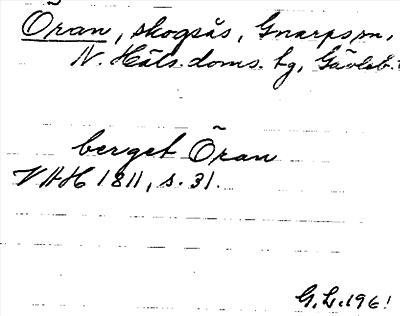 Öran, skogsås, Gnarps sn,
N. Häls. doms. tg, Gävleb.
berget Öran
VAH 1811, s. 31.
G. L. 1961